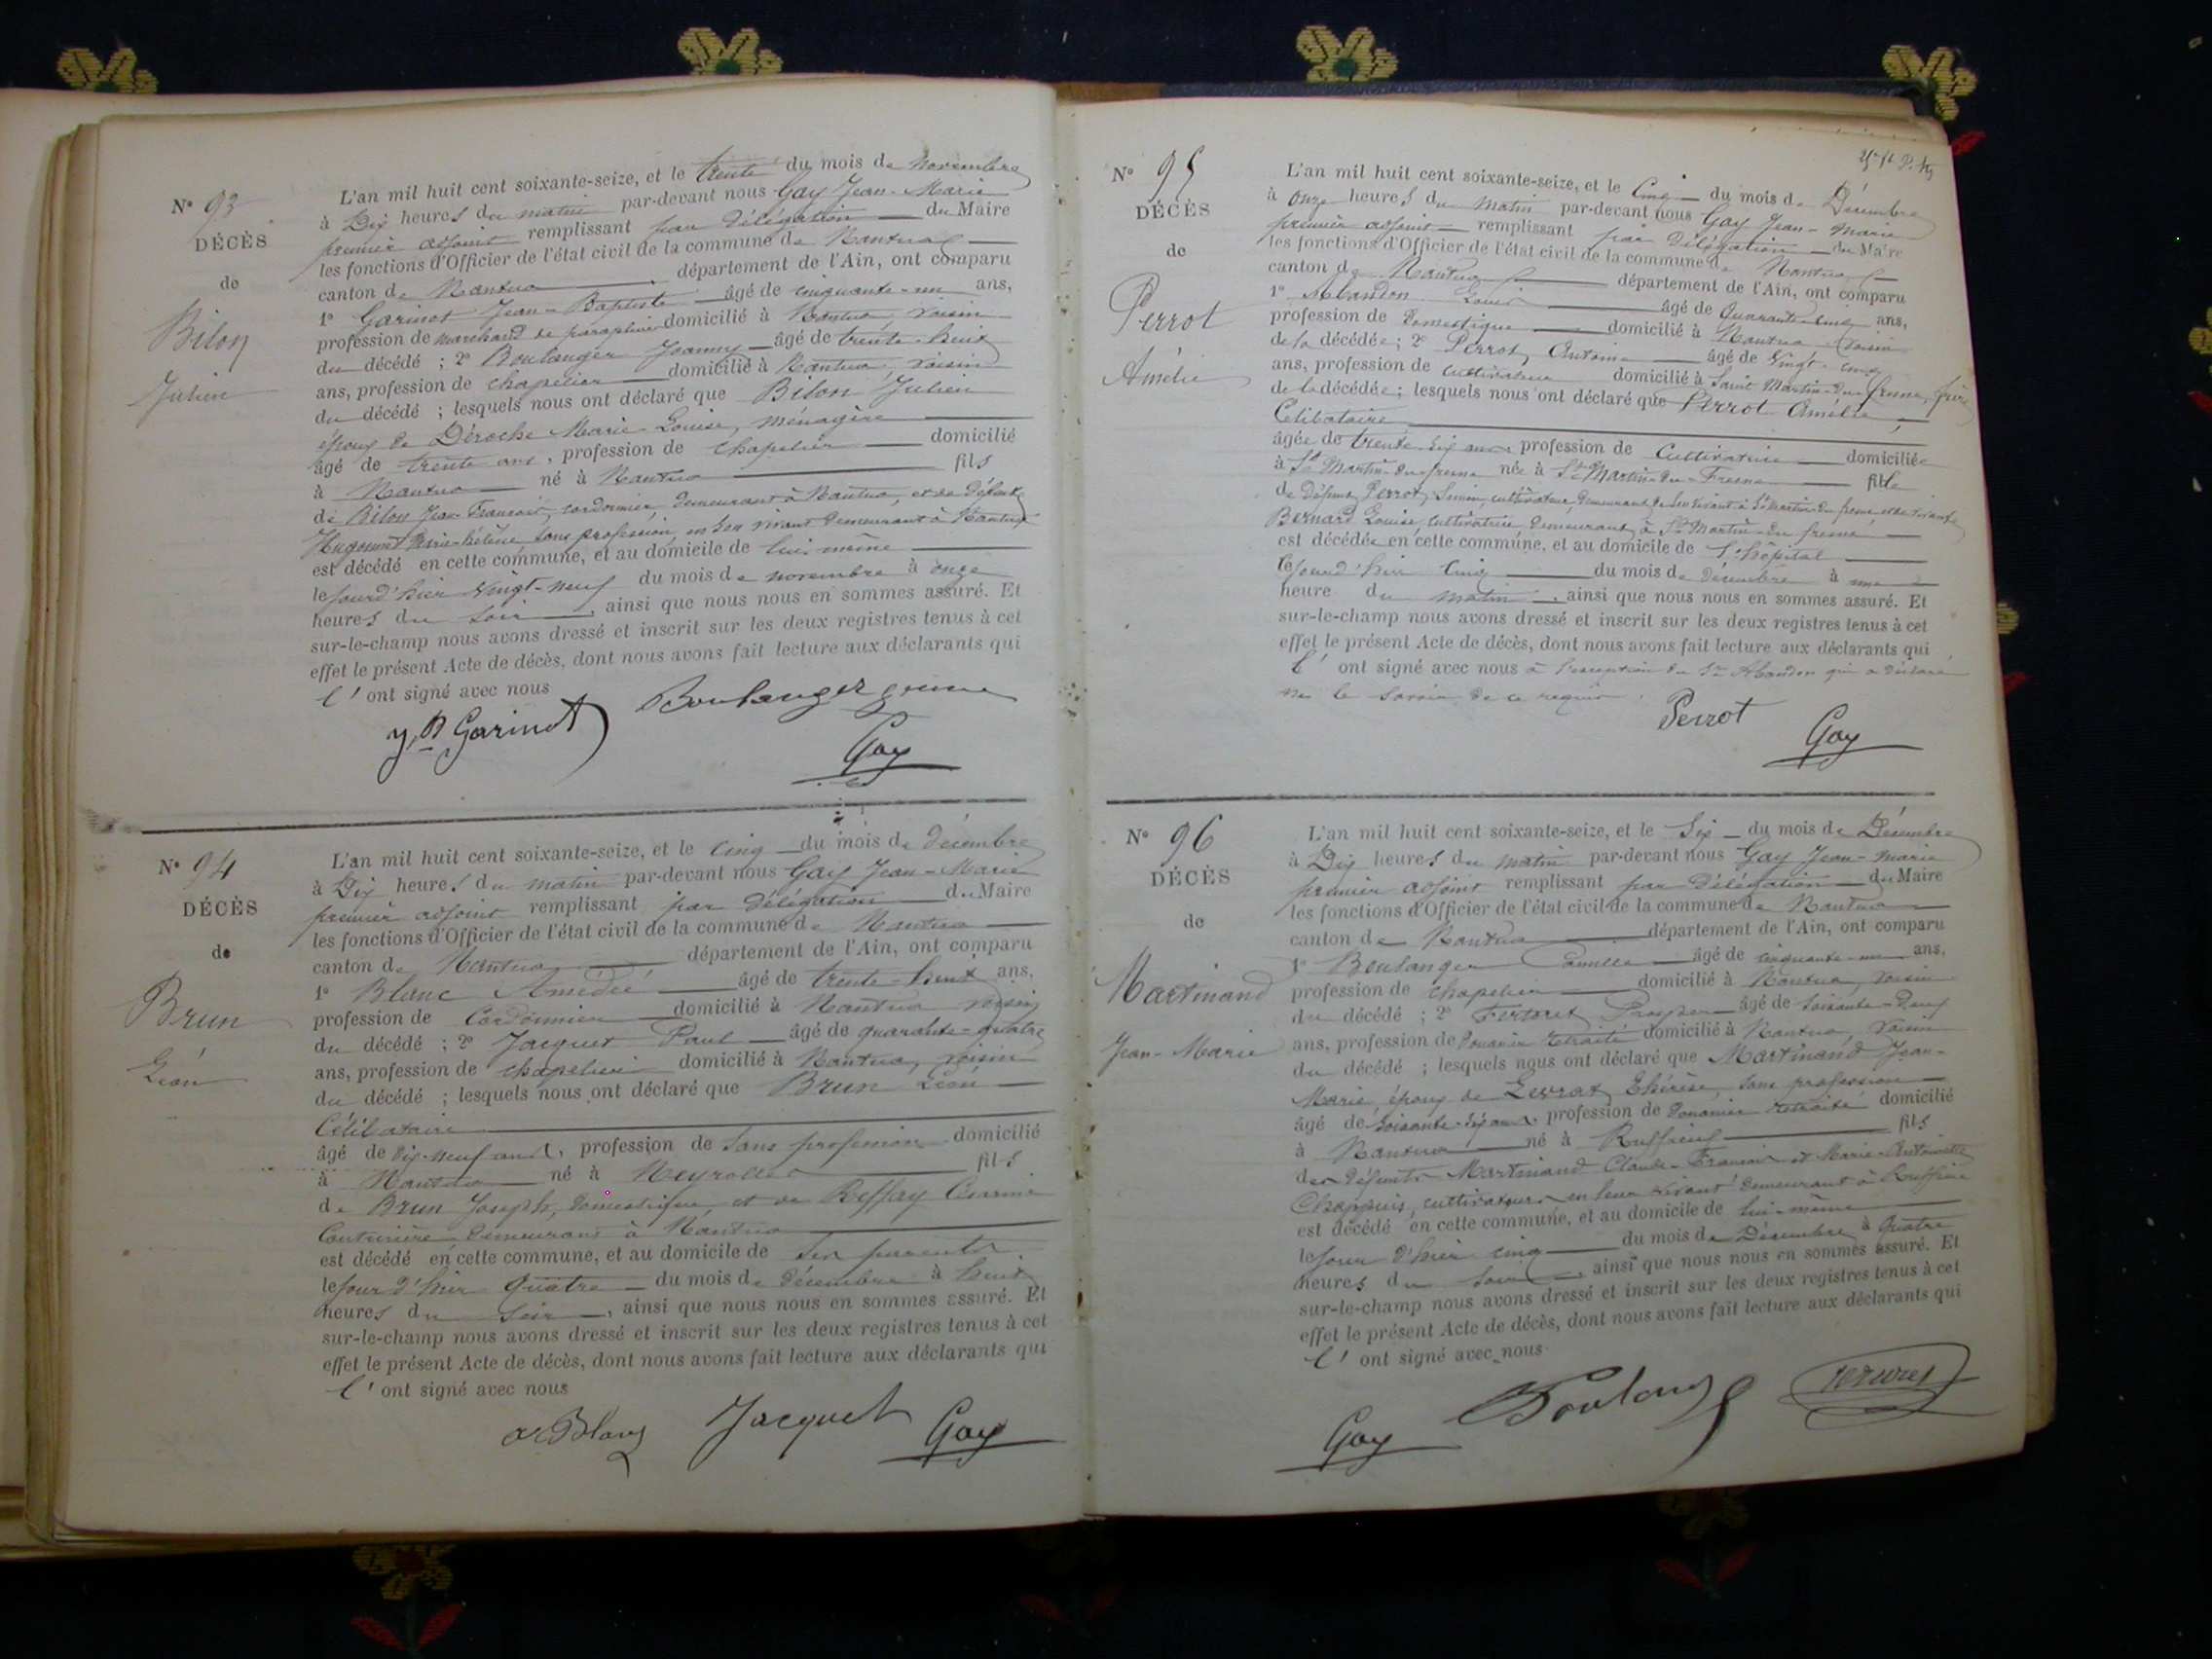 N° 93
DÉCÈS
de
Bilon
Julien
L'an mil huit cent soixante-seize, et le trente du mois de Novembre
à Dix heures du matin par-devant nous Gay Jean-Marie
premier adjoint remplissant par délégation du Maire
les fonctions d'Officier de l'état civil de la commune de Nantua
canton de Nantua département de l'Ain, ont comparu
1° Garinot Jean-Baptiste âgé de cinquante-un ans,
profession de marchand de parapluies domicilié à Nantua, voisin
du décédé ; 2° Boulanger Joanny âgé de trente-huit
ans, profession de chapelier domicilié à Nantua, voisin
du décédé ; lesquels nous ont déclaré que Bilon Julien
époux de Déroche Marie-Louise, ménagère
âgé de trente ans, profession de chapelier domicilié
à Nantua né à Nantua fils
de Bilon Jean-François, cordonnier, demeurant à Nantua, et de défunte
Marie-hélène sans profession, en son vivant demeurant à Nantua
est décédé en cette commune, et au domicile de lui-même
le jourd'hier vingt-neuf du mois de novembre à onze
heures du soir, ainsi que nous nous en sommes assuré. Et
sur-le-champ nous avons dressé et inscrit sur les deux registres tenus à cet
effet le présent Acte de décès, dont nous avons fait lecture aux déclarants qui
l'ont signé avec nous
Boulanger jeune
J. B Garinot
Gay
N° 94
DÉCÈS
de
Brun
Léon
L'an mil huit cent soixante-seize, et le cinq du mois de décembre
à Dix heures du matin par-devant nous Gay Jean-Marie
premier adjoint remplissant par délégation du Maire
les fonctions d'Officier de l'état civil de la commune de Nantua
canton de Nantua département de l'Ain, ont comparu
1° Blanc Amédée âgé de trente-huit ans,
profession de Cordonnier domicilié à Nantua voisin
du décédé ; 2° Jacquet Paul âgé de quarante-quatre
ans, profession de chapelier domicilié à Nantua, voisin
du décédé ; lesquels nous ont déclaré que Brun Léon
Célibataire
âgé de dix-neuf ans, profession de Sans profession domicilié
à Nantua né à Neyrolles fils
de Brun Joseph, domestique, et de Reffay
Couturière demeurant à Nantua
est décédé en cette commune, et au domicile de ses parents
le jour d'hier quatre du mois de décembre à huit
heures du soir, ainsi que nous nous en sommes assuré. Et
sur-le-champ nous avons dressé et inscrit sur les deux registres tenus à cet
effet le présent Acte de décès, dont nous avons fait lecture aux déclarants qui
l'ont signé avec nous
Blanc Jacquet Gay
N° 95
DÉCÈS
de
Perrot
Amélie
L'an mil huit cent soixante-seize, et le Cinq du mois de Décembre
à onze heures du matin par-devant nous Gay Jean-Marie
premier adjoint remplissant par délégation du Maire
les fonctions d'Officier de l'état civil de la commune de Nantua
canton de Nantua département de l'Ain, ont comparu
1° Abandon Louis âgé de Quarante-cinq ans,
profession de domestique domicilié à Nantua voisin
de la décédée ; 2° Perrot Antoine âgé de vingt-cinq
ans, profession de cultivateur domicilié à Saint Martin-du-fresne, frère
de la décédée ; lesquels nous ont déclaré que Perrot Amélie,
Célibataire
âgée de trente-six ans profession de Cultivatrice domiciliée
à St Martin-du-fresne née à St Martin-du-Fresne fille
de défunt Perrot Simon, cultivateur, demeurant de son vivant à St Martin-du-fresne et de vivante
Bernard Louise, cultivatrice, demeurant à St Martin-du-fresne
est décédée en cette commune, et au domicile de l'hôpital
le jourd'hier cinq du mois de décembre à une
heure du matin, ainsi que nous nous en sommes assuré. Et
sur-le-champ nous avons dressé et inscrit sur les deux registres tenus à cet
effet le présent Acte de décès, dont nous avons fait lecture aux déclarants qui
l'ont signé avec nous à l'exception du Sr Abandon qui a déclaré
ne le savoir de ce requis.
Perrot
Gay
N° 96
DÉCÈS
de
Martinand
Jean-Marie
L'an mil huit cent soixante-seize, et le Six du mois de Décembre
à Dix heures du matin par-devant nous Gay Jean-marie
premier adjoint remplissant par délégation du Maire
les fonctions d'Officier de l'état civil de la commune de Nantua
canton de Nantua département de l'Ain, ont comparu
1° Boulanger Camille âgé de cinquante-un ans,
profession de chapelier domicilié à Nantua, voisin
du décédé ; 2° Prosper âgé de soixante-deux
ans, profession de Douanier retraité domicilié à Nantua, voisin
du décédé ; lesquels nous ont déclaré que Martinand Jean-
Marie, époux de Levrat Thérèse, sans profession
âgé de soixante-six ans, profession de Douanier retraité domicilié
à Nantua né à Ruffieu fils
des défunts Martinand Claude-François et Marie-Antoinette
Chappuis, cultivateurs en leur vivant demeurant à Ruffieu
est décédé en cette commune, et au domicile de lui-même
le jour d'hier cinq du mois de Décembre à quatre
heures du soir, ainsi que nous nous en sommes assuré. Et
sur-le-champ nous avons dressé et inscrit sur les deux registres tenus à cet
effet le présent Acte de décès, dont nous avons fait lecture aux déclarants qui
l'ont signé avec nous
Gay Boulanger